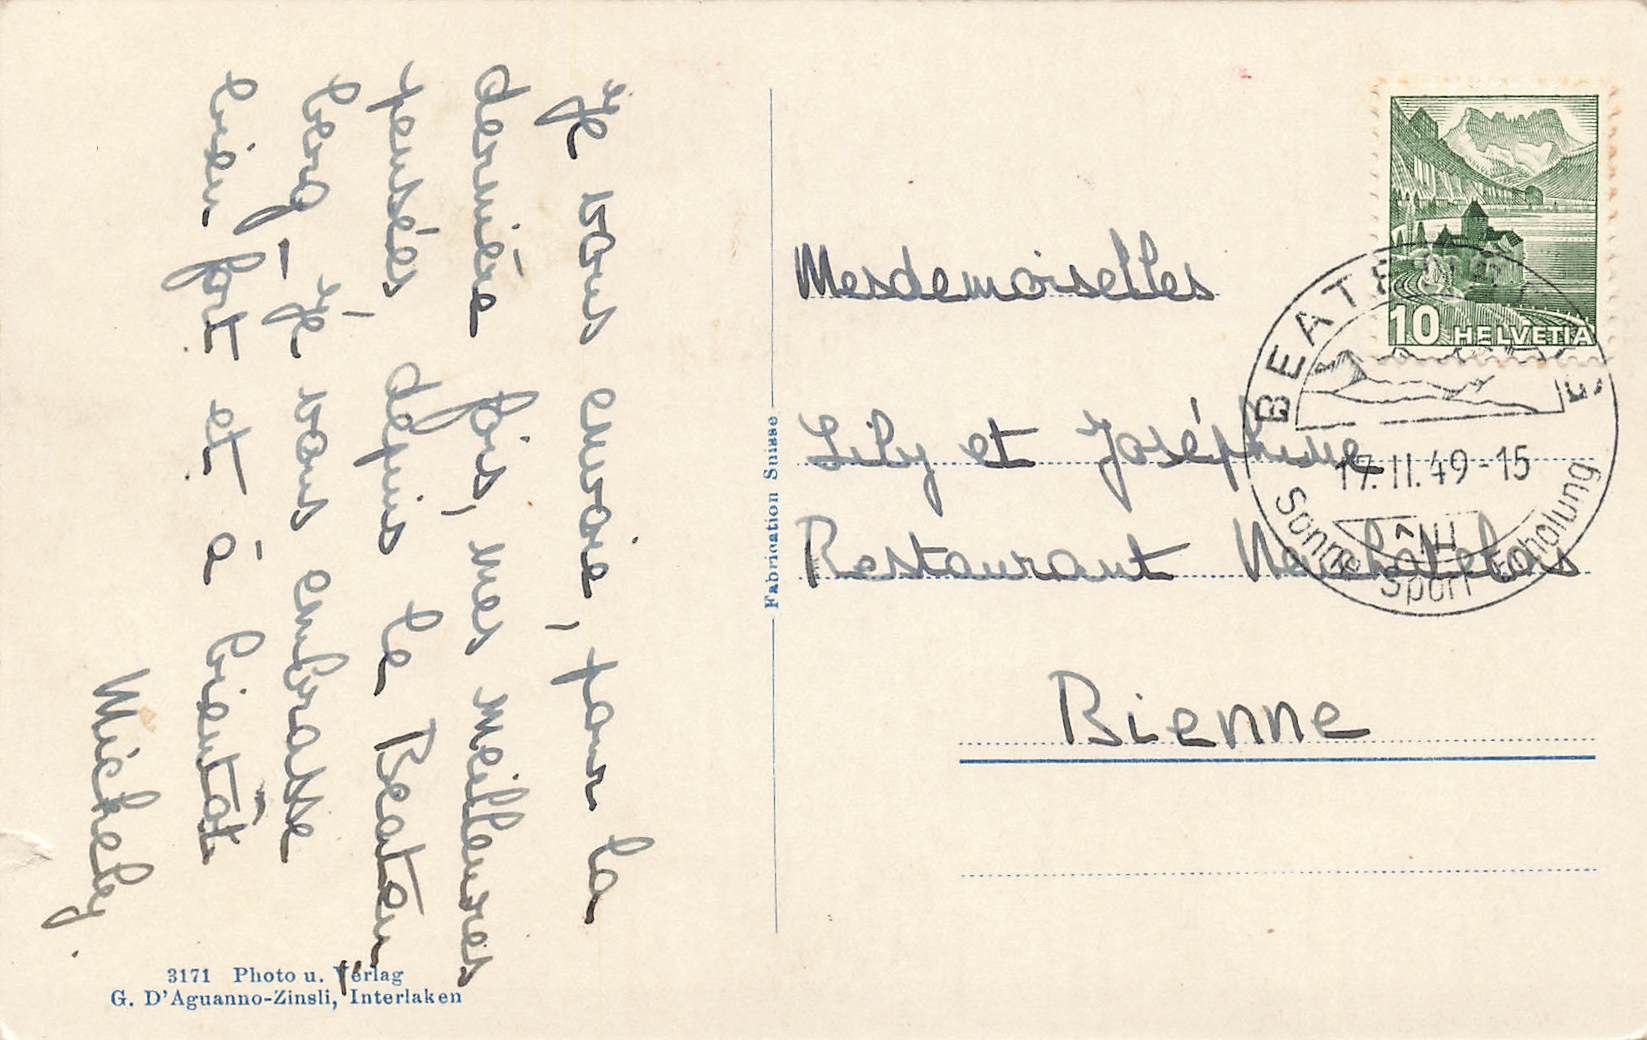 Je vous envoie, pour la
dernière fois, mes meilleures
pensées depuis le Beaten-
berg - Je vous embrasse
bien fort et à bientôt
Michely.
3171 Photo u. Verlag
G. D'Aguanno-Zinsli, Interlaken
Fabrication Suisse
10 HELVETIA
BEATENBERG
17.II.49-15
Sonne Sport Erholung
Mesdemoiselles
Lily et Joséphine
Restaurant Neuchâtelois
Bienne